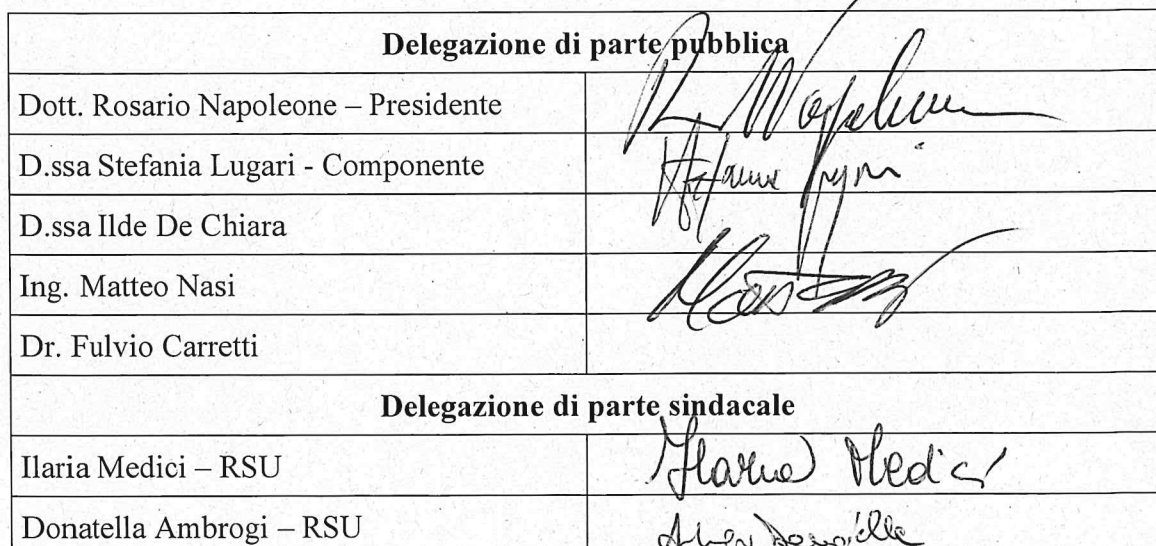 Delegazione di parte pubblica
Dott. Rosario Napoleone – Presidente
D.ssa Stefania Lugari - Componente
D.ssa Ilde De Chiara
Ing. Matteo Nasi
Dr. Fulvio Carretti
Delegazione di parte sindacale
Ilaria Medici – RSU Ilaria Medici
Donatella Ambrogi – RSU